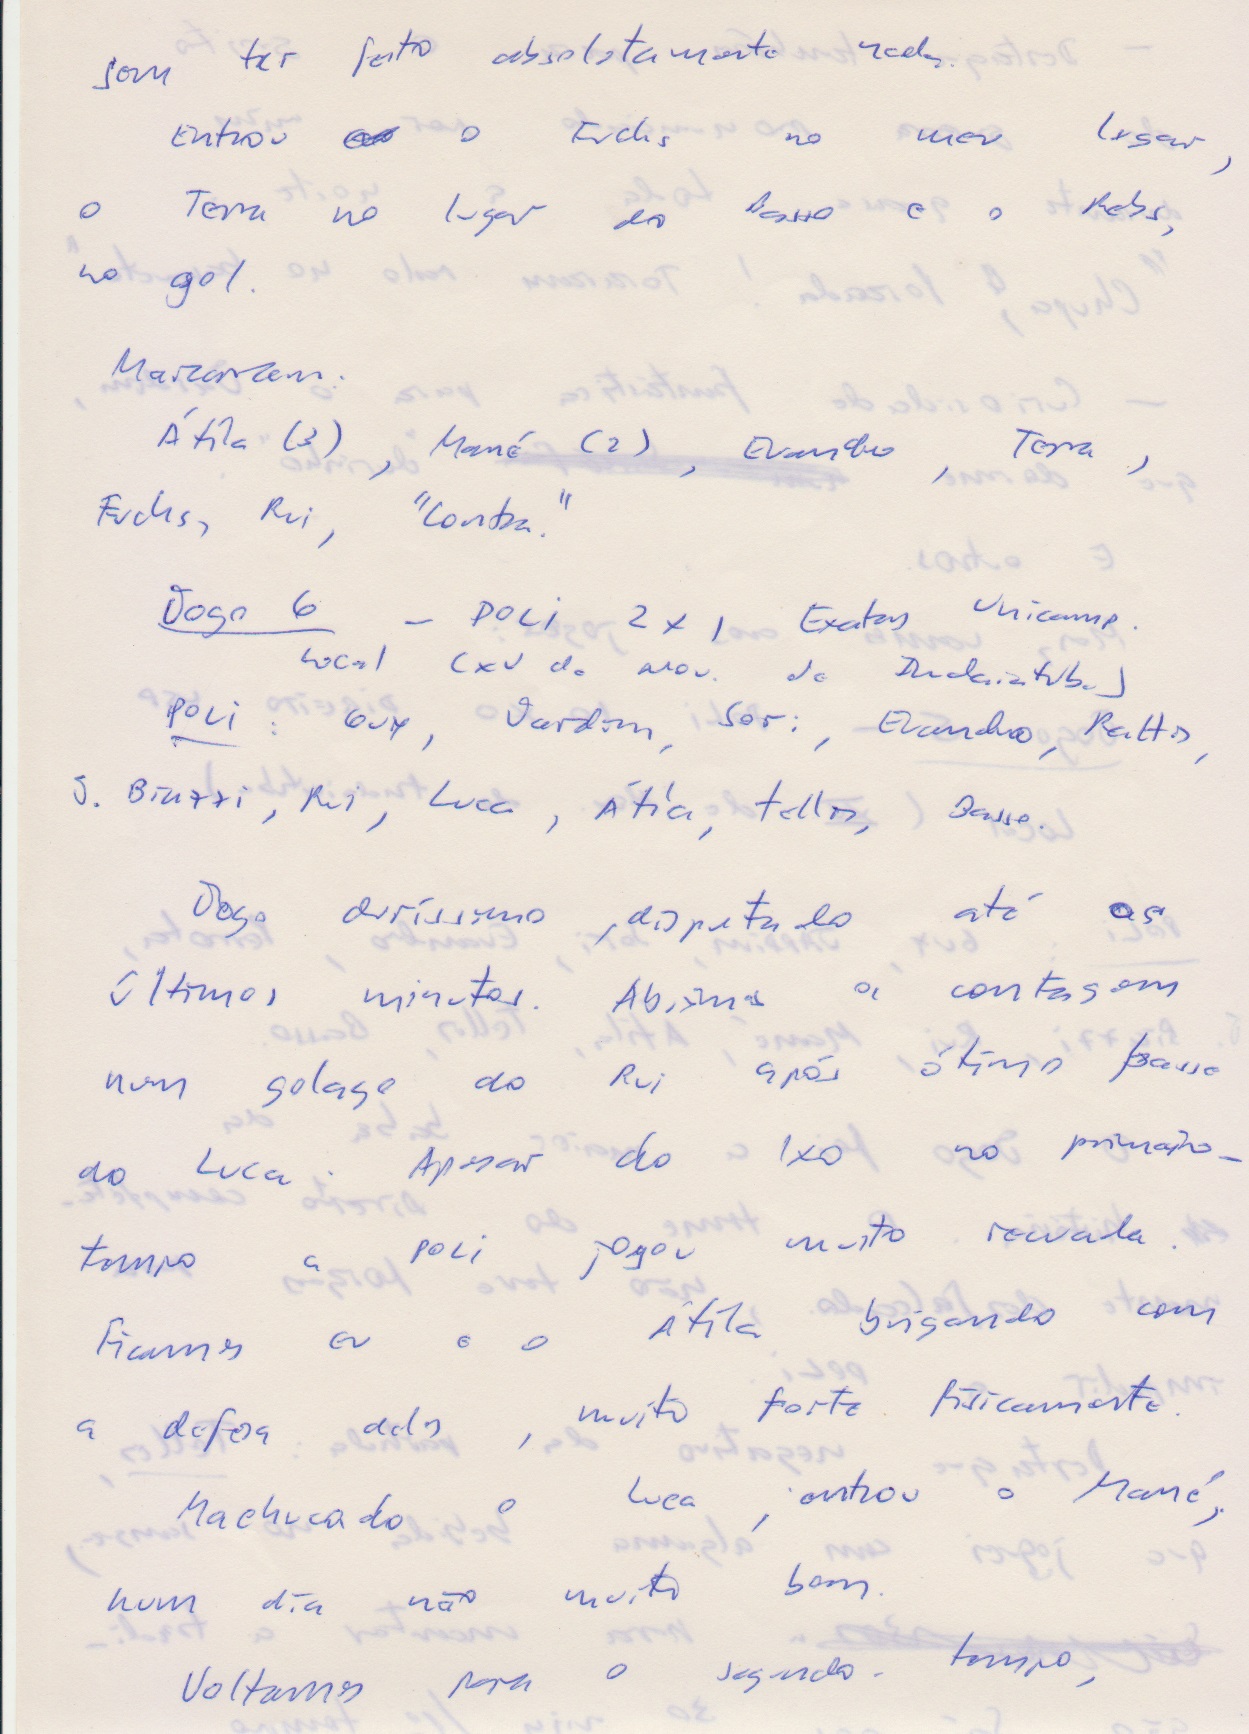 sem ter feito absolutamente nada.
Entrou o Fuchs no meu lugar,
o Terra no lugar do Basso e o Rebs,
no gol.
Marcaram:
Átila (3), Mané (2), Evandro, Terra,
Fuchs, Rui, "Contra."
Jogo 6 - POLI 2 x 1 Exatas Unicamp.
Local (XV de nov. de Indaiatuba)
POLI: Guy, Jardim, Sori, Evandro, Rattis,
J. Biazzi, Rui, Luca, Átila, Telles, Basso.
Jogo duríssimo, disputado até os
últimos minutos. Abrimos a contagem
num golaço do Rui após ótimo passe
do Luca. Apesar do 1x0 no primeiro-
tempo a POLI jogou muito recuada.
Ficamos eu e o Átila brigando com
a defesa deles, muito forte fisicamente.
Machucado o Luca, entrou o Mané,
num dia não muito bom.
Voltamos para o segundo-tempo,